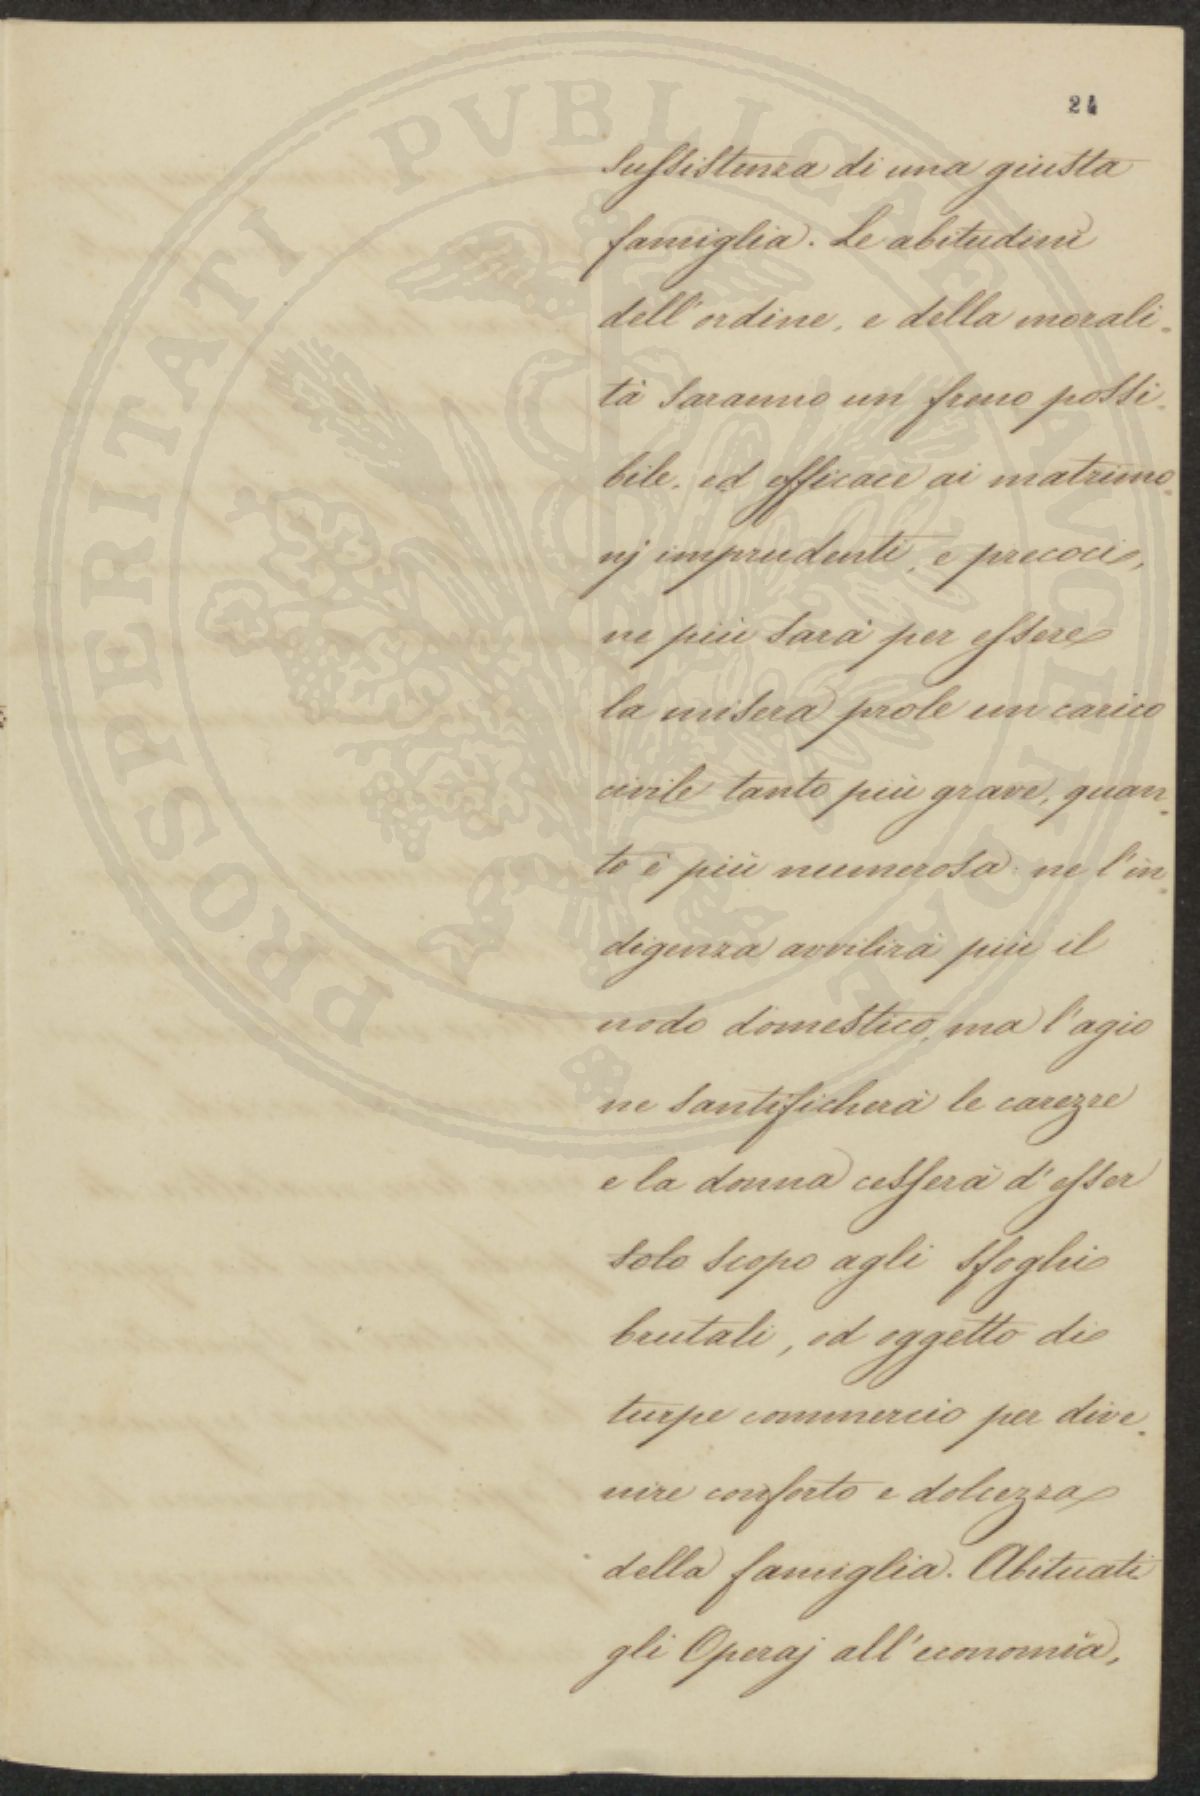 24
PROSPERITATI PVBLICAE AVGENDAE
sussistenza di una giusta
famiglia. Le abitudini
dell'ordine, e della morali-
tà saranno un freno possi-
bile, ed efficace ai matrimo-
nj imprudenti, e precoci,
ne più sarà per essere
la misera prole un carico
civile tanto più grave, quan-
to è più numerosa: ne l'in-
digenza avvilirà più il
nodo domestico, ma l'agio
ne santificherà le carezze
e la donna cesserà d'esser
solo scopo agli sfoghi
brutali, od oggetto di
turpe commercio per dive-
nire conforto e dolcezza
della famiglia. Abituati
gli Operaj all'economia,